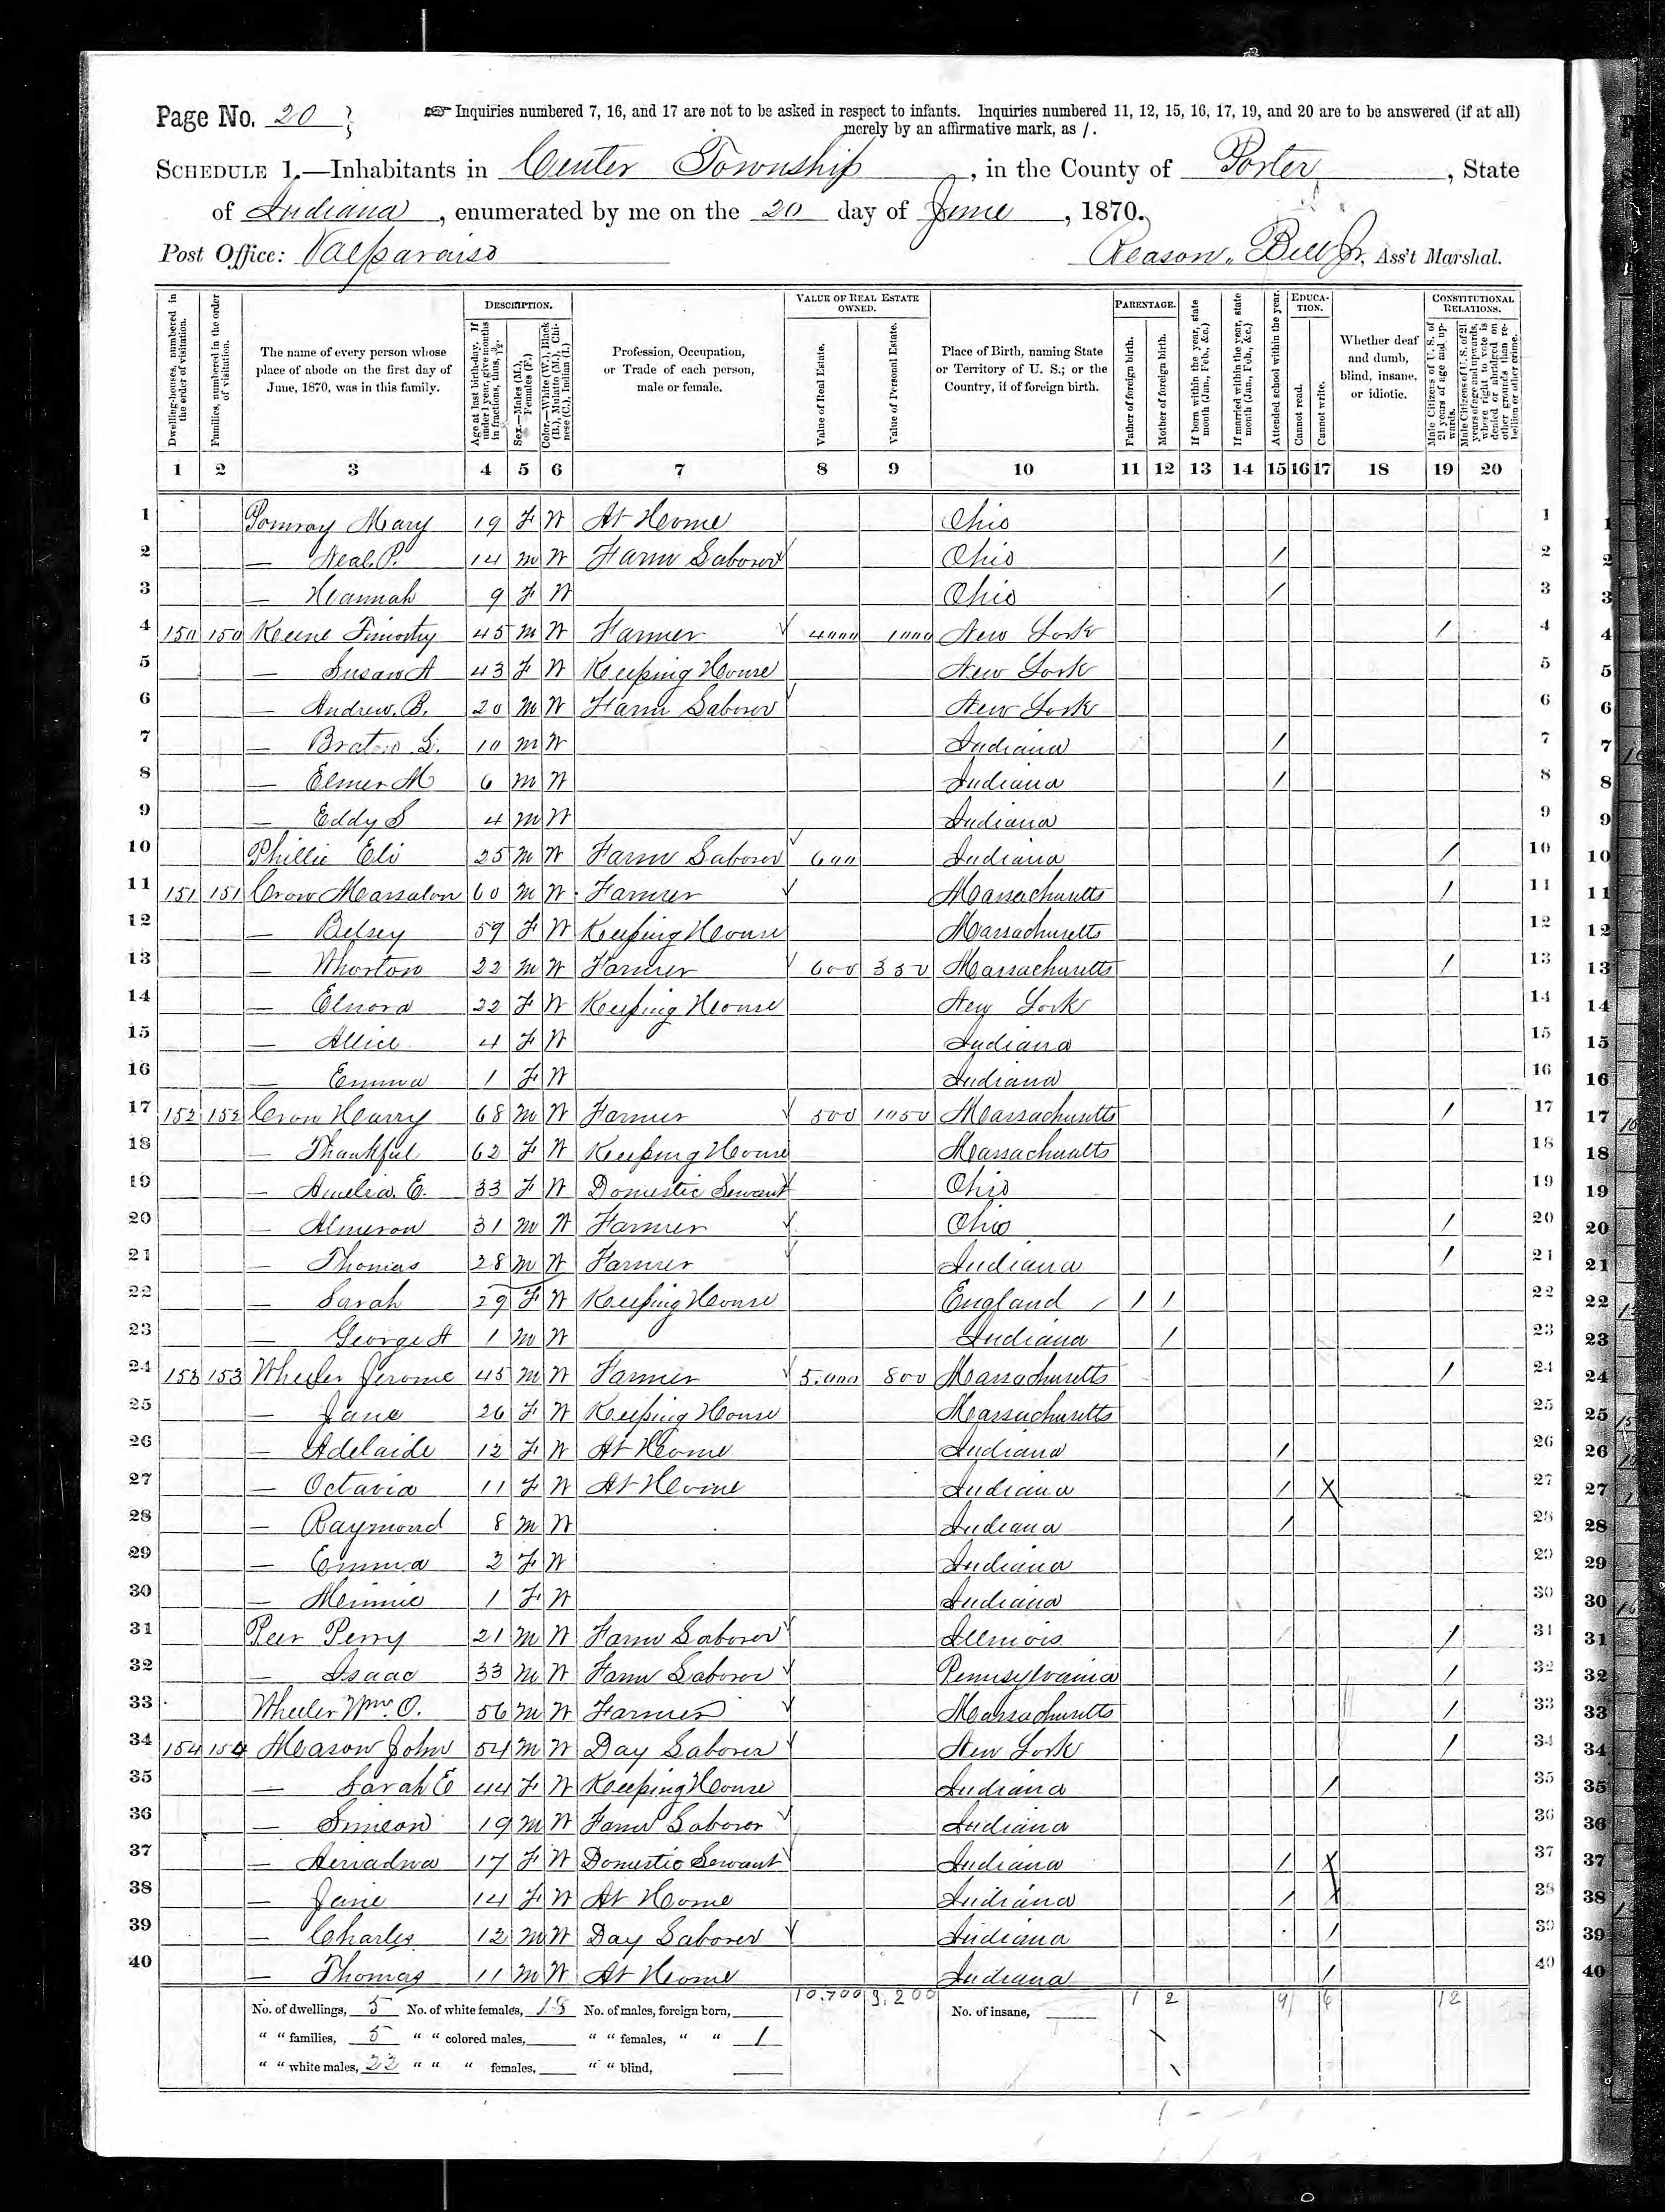 Page No. 20
Inquiries numbered 7, 16, and 17 are not to be asked in respect to infants. Inquiries numbered 11, 12, 15, 16, 17, 19, and 20 are to be answered (if at all)
merely by an affirmative mark, as /.
SCHEDULE 1.—Inhabitants in Center Township, in the County of Porter, State
of Indiana, enumerated by me on the 20 day of June, 1870.
Post Office: Valparaiso
Reason Bell Jr, Ass't Marshal.
Dwelling-houses, numbered in the order of visitation.
Families, numbered in the order of visitation.
The name of every person whose place of abode on the first day of June, 1870, was in this family.
DESCRIPTION.
Age at last birth-day. If under 1 year, give months in fractions, thus, 3/12.
Sex.—Males (M.), Females (F.)
Color.—White (W.), Black (B.), Mulatto (M.), Chinese (C.), Indian (I.)
Profession, Occupation, or Trade of each person, male or female.
VALUE OF REAL ESTATE OWNED.
Value of Real Estate.
Value of Personal Estate.
Place of Birth, naming State or Territory of U. S.; or the Country, if of foreign birth.
PARENTAGE.
Father of foreign birth.
Mother of foreign birth.
If born within the year, state month (Jan., Feb., &c.)
If married within the year, state month (Jan., Feb., &c.)
Attended school within the year.
EDUCATION.
Cannot read.
Cannot write.
Whether deaf and dumb, blind, insane, or idiotic.
CONSTITUTIONAL RELATIONS.
Male Citizens of U. S. of 21 years of age and upwards.
Male Citizens of U. S. of 21 years of age and upwards, where right to vote is denied or abridged on other grounds than rebellion or other crime.
1 2 3 4 5 6 7 8 9 10 11 12 13 14 15 16 17 18 19 20
1 Pomray Mary 19 F W At Home Ohio 1
2 — Neal P. 14 M W Farm Laborer Ohio / 2
3 — Hannah 9 F W Ohio / 3
4 150 150 Keene Timothy 45 M W Farmer 4000 1000 New York / 4
5 — Susan A 43 F W Keeping House New York 5
6 — Andrew B. 20 M W Farm Laborer New York 6
7 — L. 10 M W Indiana / 7
8 — Elmer M 6 M W Indiana / 8
9 — Eddy S 4 M W Indiana 9
10 Phillie Eli 25 M W Farm Laborer 600 Indiana / 10
11 151 151 Crow Massalon 60 M W Farmer Massachusetts / 11
12 — Betsey 59 F W Keeping House Massachusetts 12
13 — Whorton 22 M W Farmer 600 350 Massachusetts / 13
14 — Elnora 22 F W Keeping House New York 14
15 — Allice 4 F W Indiana 15
16 — Emma 1 F W Indiana 16
17 152 152 Crow Harry 68 M W Farmer 500 1050 Massachusetts / 17
18 — Thankful 62 F W Keeping House Massachusetts 18
19 — Amelia E. 33 F W Domestic Servant Ohio 19
20 — Almeron 31 M W Farmer Ohio / 20
21 — Thomas 28 M W Farmer Indiana / 21
22 — Sarah 29 F W Keeping House England / / 22
23 — George A 1 M W Indiana / 23
24 153 153 Wheeler Jerome 45 M W Farmer 5,000 800 Massachusetts / 24
25 — Jane 26 F W Keeping House Massachusetts 25
26 — Adelaide 12 F W At Home Indiana / 26
27 — Octavia 11 F W At Home Indiana / X 27
28 — Raymond 8 M W Indiana / 28
29 — Emma 2 F W Indiana 29
30 — Minnie 1 F W Indiana 30
31 Peer Perry 21 M W Farm Laborer Illinois / 31
32 — Isaac 33 M W Farm Laborer Pennsylvania / 32
33 Wheeler Wm. O. 56 M W Farmer Massachusetts / 33
34 154 154 Mason John 54 M W Day Laborer New York / 34
35 — Sarah E 44 F W Keeping House Indiana / 35
36 — Simeon 19 M W Farm Laborer Indiana 36
37 — 17 F W Domestic Servant Indiana / X 37
38 — Jane 14 F W At Home Indiana / X 38
39 — Charles 12 M W Day Laborer Indiana / 39
40 — Thomas 11 M W At Home Indiana / 40
No. of dwellings, 5 No. of white females, 18 No. of males, foreign born, 10,700 3,200 No. of insane, 1 2 9 6 12
" " families, 5 " " colored males, " " females, " " 1
" " white males, 22 " " " females, " " blind,